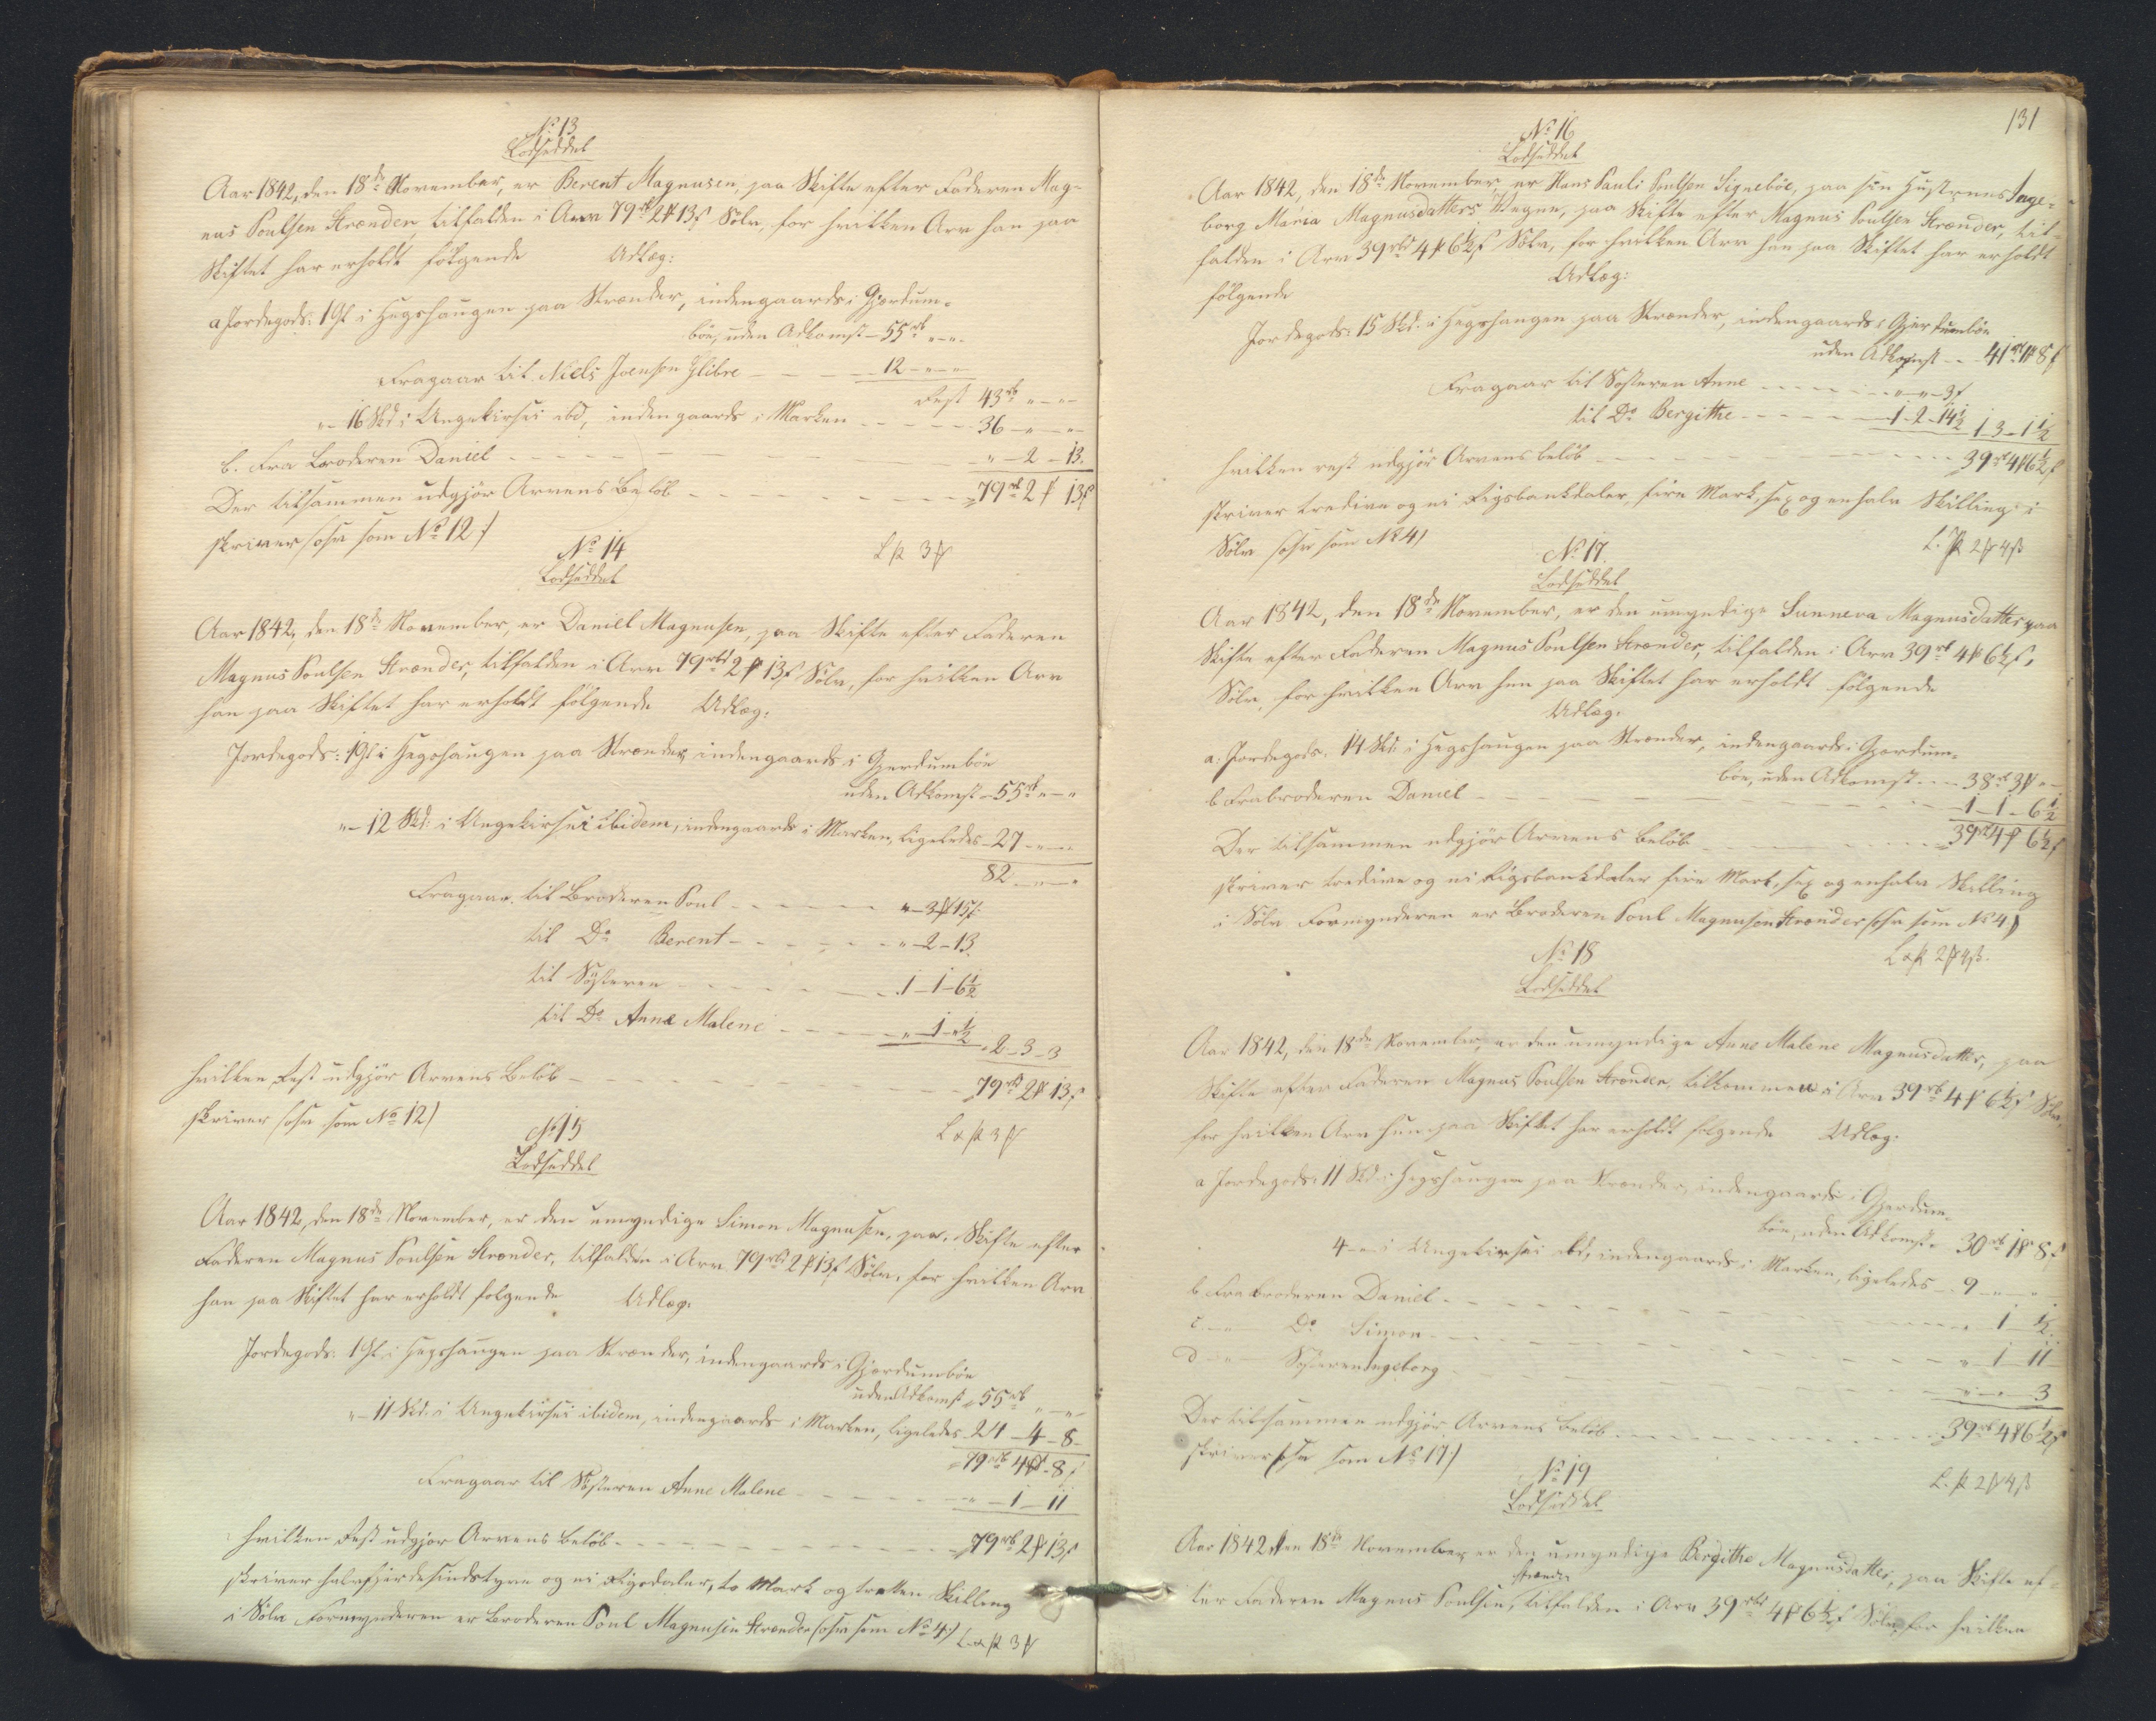 No 13
Lodseddel
Aar 1842, den 18de November, er Berent Magnusen, paa Skifte efter Faderen Mag-
nus Poulsen Strænder tilfalden i Arv 79rbd 2 ℔ 13 s Sölv, for hvilken Arv han paa
Skiftet har erholdt fölgende Udlæg:
a Jordegods: 1 Gl i Hegshaugen paa Strænder, indengaards i Gjerdum-
böe, uden Adkomst - 55 rb " - "
Fragaar til Niels Joensen Glibre - - - 12 - " - "
Rest 43 rb " - "
" - 16 Skd i Ungekirsei ibd, indengaards i Marken - - - 36 - " - "
b. Fra Broderen Daniel - - - " - 2 - 13.
Der tilsammen udgjör Arvens Belöb - - - 79 rb 2 ℔ 13 s
skriver /: osv som No 12 :/
L & S 3 ℔
No 14
Lodseddel
Aar 1842, den 18de November, er Daniel Magnusen, paa Skifte efter Faderen
Magnus Poulsen Strænder, tilfalden i Arv 79 rbd 2 ℔ 13 s Sölv, for hvilken Arv
han paa Skiftet har erholdt fölgende Udlæg:
Jordegods: 1 Gl i Hegshaugen paa Strænder indengaards i Gjerdumböe
uden Adkomst - 55 rb " - "
" - 12 Skd: i Ungekirsei ibidem, indengaards i Marken, ligeledes - 27 - " - "
82 - " - "
Fragaar til Broderen Poul - - - " - 3 ℔ 15 s
til Do Berent - - - " - 2 - 13
til Sösteren - - - 1 - 1 - 6½
til Do Anne Malene - - - " - 1 - ½
2 - 3 - 3
hvilken Rest udgjör Arvens Belöb - - - 79 rbd 2 ℔ 13 s
skriver /osv som No 12/
L & S 3 ℔
No 15
Lodseddel
Aar 1842, den 18de November, er den umyndige Simon Magnusen, paa Skifte efter
Faderen Magnus Poulsen Strænder, tilfalden i Arv 79 rbd 2 ℔ 13 s Sölv, for hvilken Arv
han paa Skiftet har erholdt fölgende Udlæg:
Jordegods: 1 Gl i Hegshaugen paa Strænder, indengaards i Gjerdumböe
uden Adkomst 55 rb " - "
" - 11 Skd. i Ungekirsei ibidem, indengaards i Marken, ligeledes 24 - 4 - 8 -
79 rb 4 ℔ 8 s
Fragaar til Sösteren Anne Malene - - - " - 1 - 11
hvilken Rest udgjör Arvens belöb - - - 79 rb 2 ℔ 13 s
skriver halvfjerdesindstyve og ni Rigsdaler, to Mark og tretten Skilling
i Sölv Formynderen er Broderen Poul Magnusen Strænder /osv som No 4/ L & S 3 ℔
131
No 16
Lodseddel
Aar 1842, den 18de November, er Hans Pauli Poulsen Signeböe, paa sin Hustrues Inge-
borg Maria Magnusdatters Vegne, paa Skifte efter Magnus Poulsen Strænder, til-
falden i Arv 39 rbd 4 ℔ 6½ s Sölv, for hvilken Arv han paa Skiftet har erholdt
fölgende Udlæg:
Jordegods: 15 Skd: i Hegshaugen paa Strænder, indengaards i Gjerdumböe
uden Adkomst - - 41 rb 1 ℔ 8 s
Fragaar til Sösteren Anne - - - " - " - 3 s
til Do Bergithe - - - 1 - 2 - 14½ 1 - 3 - 1½
hvilken rest udgjör Arvens belöb - - - 39 rb 4 ℔ 6½ s
skriver tredive og ni Rigsbankdaler, fire Mark, sex og en halv Skilling i
Sölv /osv som No 4/
L. S 2 ℔ 4 ß
No 17.
Lodseddel
Aar 1842, den 18de November, er den umyndige Sunneva Magnusdatter paa
Skifte efter Faderen Magnus Poulsen Strænder, tilfalden i Arv 39 rb 4 ℔ 6½ s,
Sölv, for hvilken Arv hun paa Skiftet har erholdt fölgende
Udlæg:
a. Jordegods: 14 Skd i Hegshaugen paa Strænder, indengaards i Gjerdum-
böe, uden Adkomst - - 38 rb 3 ℔ "
b Fra broderen Daniel - - - 1 - 1 - 6½
Der tilsammen udgjör Arvens belöb - - - 39 rb 4 ℔ 6½ s
skriver tredive og ni Rigsbankdaler fire Mark, sex og en halv Skilling
i Sölv Formynderen er Broderen Poul Magnusen Strænder /osv som No 4/
L & S 2 ℔ 4 ß.
No 18
Lodseddel
Aar 1842, den 18de November, er den umyndige Anne Malene Magnusdatter, paa
Skifte efter Faderen Magnus Poulsen Strænder, tilkommen i Arv 39 rb 4 ℔ 6½ s Sölv,
for hvilken Arv hun paa Skiftet har erholdt fölgende Udlæg:
a Jordegods: 11 Skd i Hegshaugen paa Strænder, indengaards i Gjerdum-
böe, uden Adkomst - 30 rb 1 ℔ 8 s
4 - " - i Ungekirsei ibd, indengaards i Marken, ligeledes - 9 - " - "
b Fra broderen Daniel - - - " 1 ½
c - " - Do Simon - - - " - 1 - 11
d - " - Sösteren Ingeborg - - - " - " - 3
Der tilsammen udgjör Arvens belöb - - - 39 rb 4 ℔ 6½ s
skriver /osv som No 17/
L. S 2 ℔ 4 ß
No 19
Lodseddel
Aar 1842 den 18de November, er den umyndige Bergithe Magnusdatter, paa Skifte ef-
ter Faderen Magnus Poulsen Strænder, tilfalden i Arv 39 rbd 4 ℔ 6½ s Sölv, for hvilken